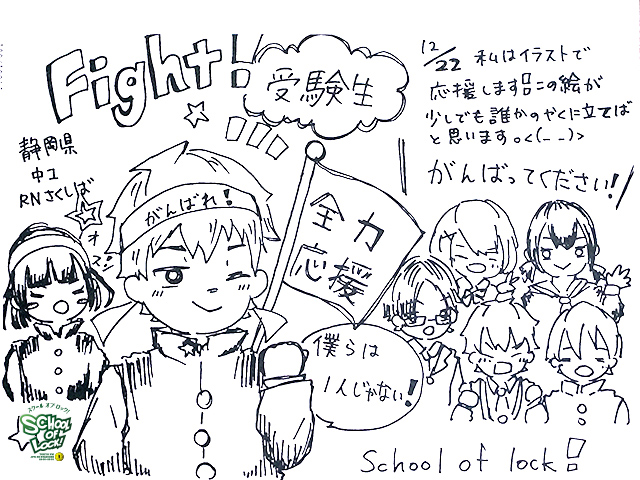 Fight!
受験生
12/22 私はイラストで
応援します!!この絵が
少しでも誰かのやくに立てば
と思います。<(_ _)>
がんばってください!!
静岡県
中1
RNさくしば
オスッ
がんばれ!
全力
応援
僕らは
1人じゃない!
スクール オブ ロック!
SCHOOL
OF
LOCK!
School of lock!